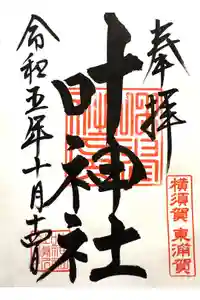 奉拝
叶神社
横須賀 東浦賀
令和五年十月十四日